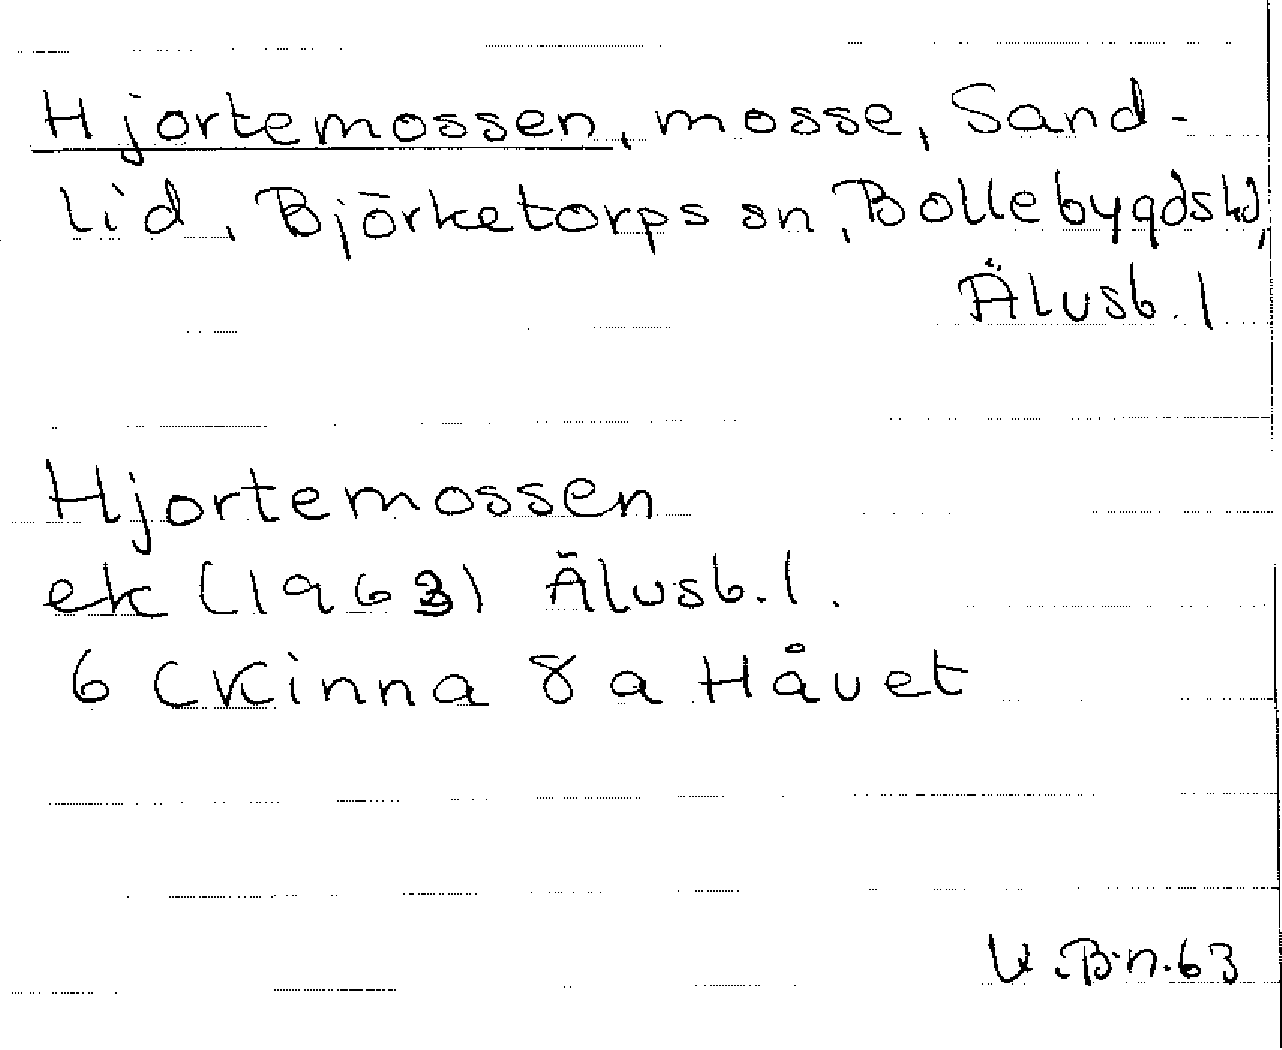 Hjortemossen, mosse, Sand-
lid, Björketorps sn, Bollebygds hd,
Älvsb. l
Hjortemossen
ek (1963) Älvsb. l.
6 C Kinna 8 a Håvet
B-n. 63